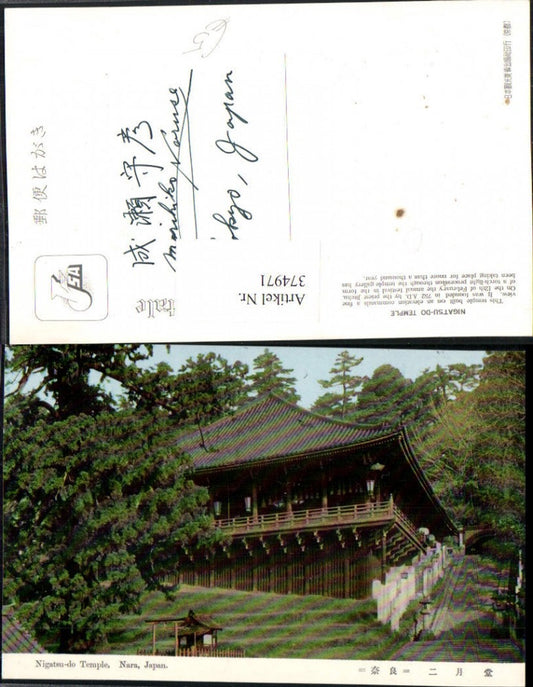 郵便はがき
JSA
成瀬守孝
Morihiko Naruse
okyo, Japan
Artikel Nr.
374971
NIGATSU-DO TEMPLE
This temple built on an elevation commands a fine
view. It was founded in 752 A.D. by the priest Jitchu.
On the 12th of February the annual festival in the form
of a torch-light procession through the temple gallery has
been taking place for more than a thousand year.
Nigatsu-do Temple, Nara, Japan.
=奈良= 二月堂